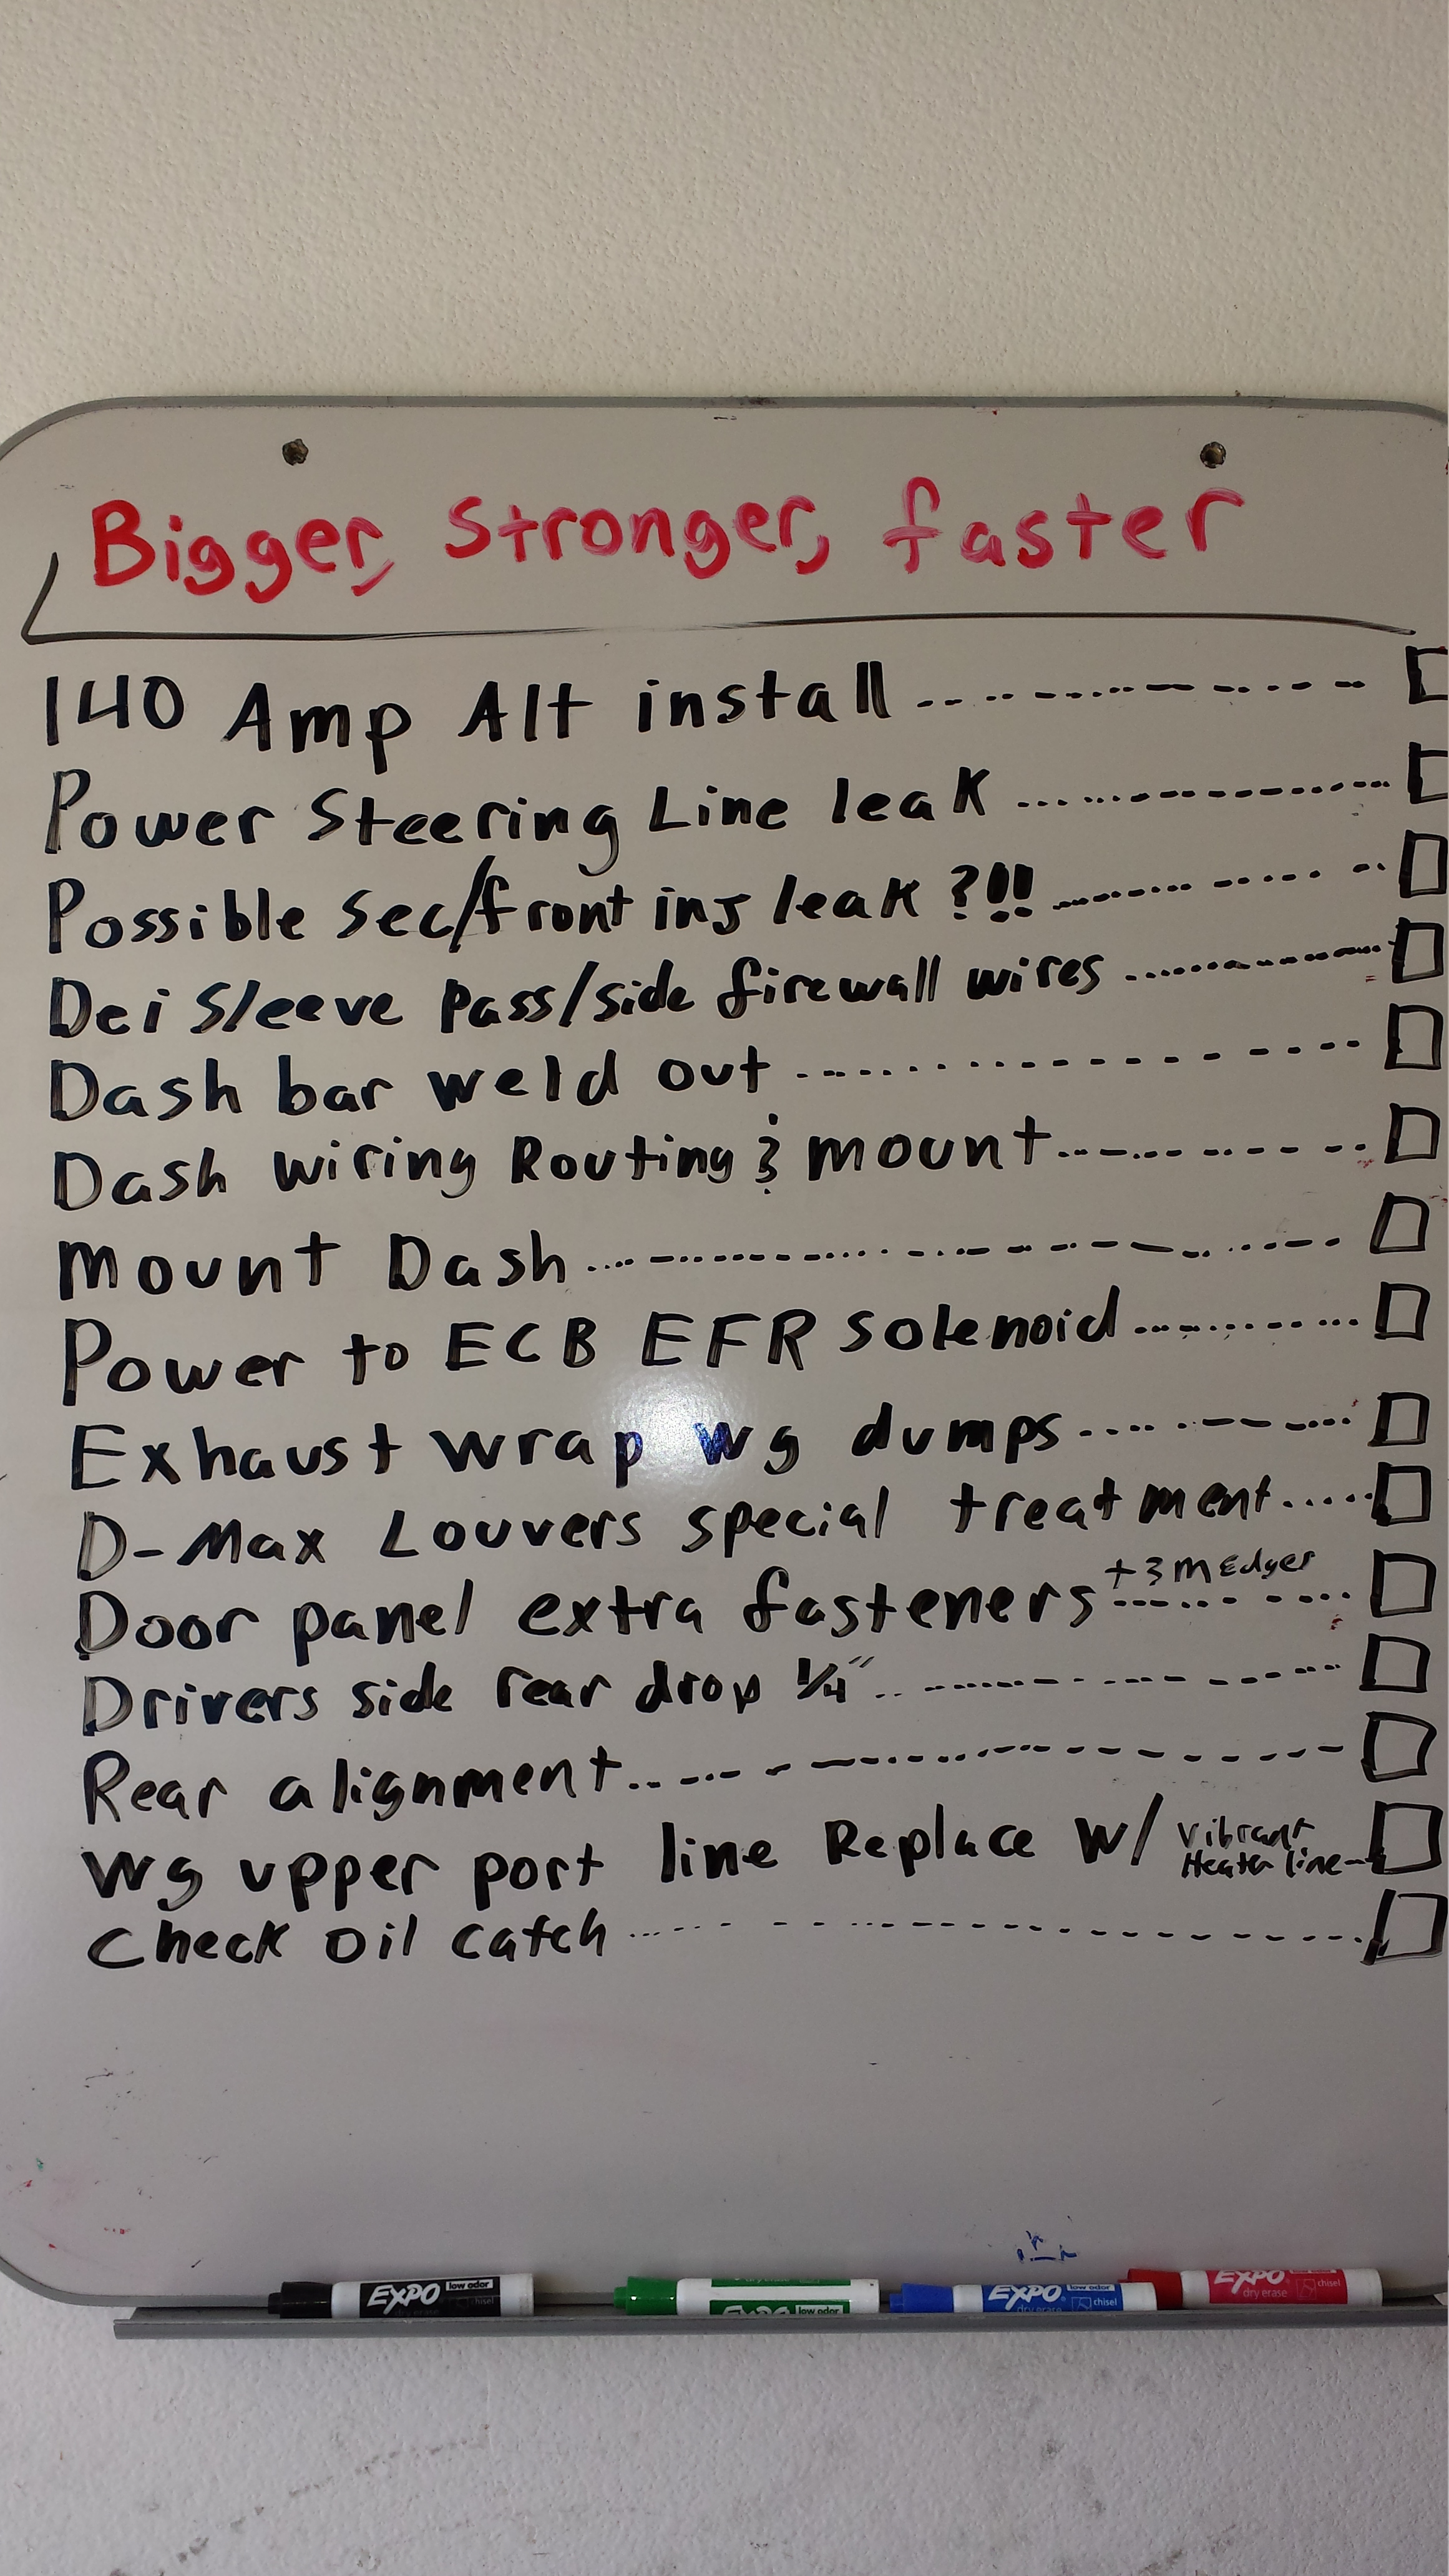 Bigger, Stronger, faster
140 Amp Alt install
Power Steering Line leak
Possible Sec/front inj leak ?!!!
Dei Sleeve Pass/side firewall wires
Dash bar weld out
Dash wiring Routing & mount
Mount Dash
Power to ECB EFR solenoid
Exhaust wrap wg dumps
D-Max Louvers special treatment
Door panel extra fasteners + 3M Edger
Drivers side rear drop 1/4"
Rear alignment
Wg upper port line Replace w/ Vibrant
Heater line
Check oil catch
EXPO low odor
dry erase chisel
EXPO low odor
EXPO low odor
dry erase chisel
EXPO
dry erase chisel